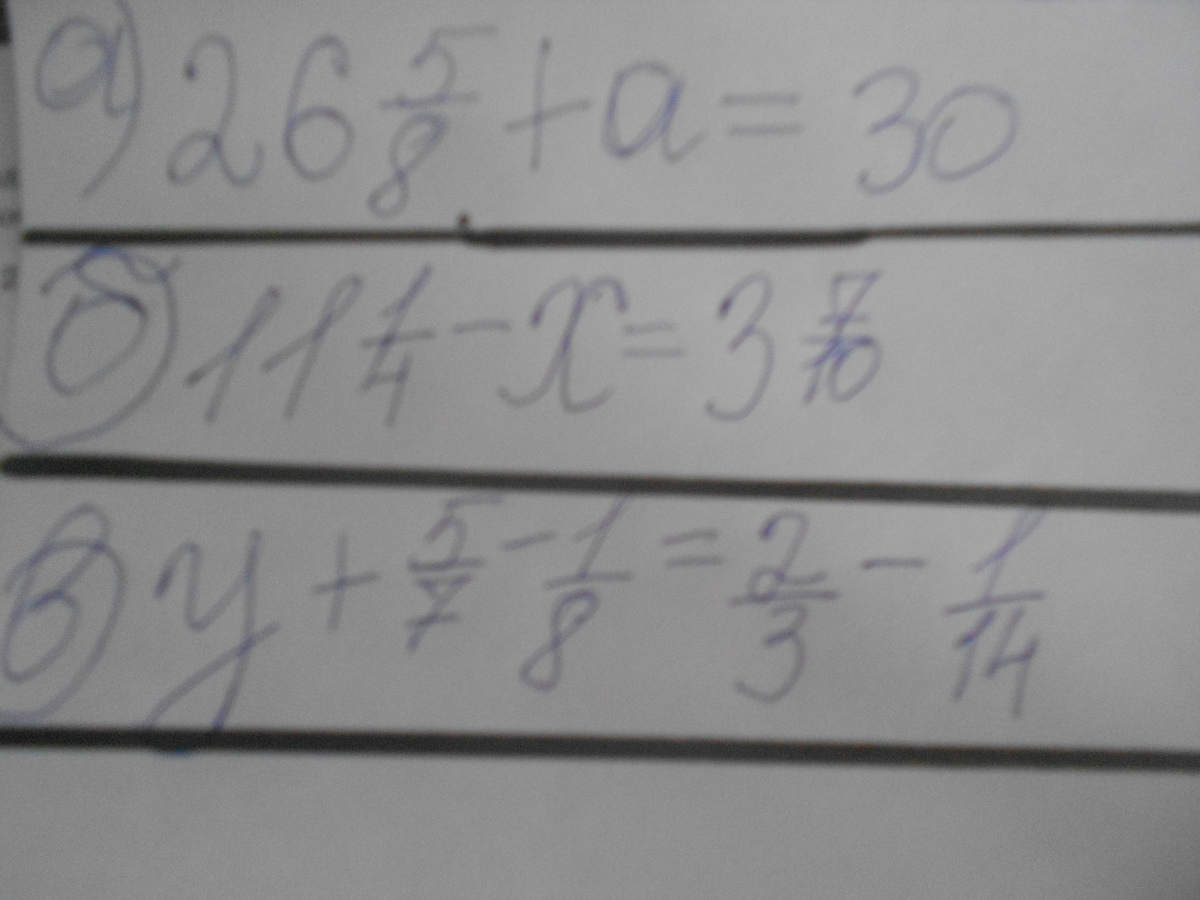 а) 26 5/8 + a = 30
б) 11 1/4 - x = 3 7/10
в) y + 5/7 - 1/8 = 2/3 - 1/14